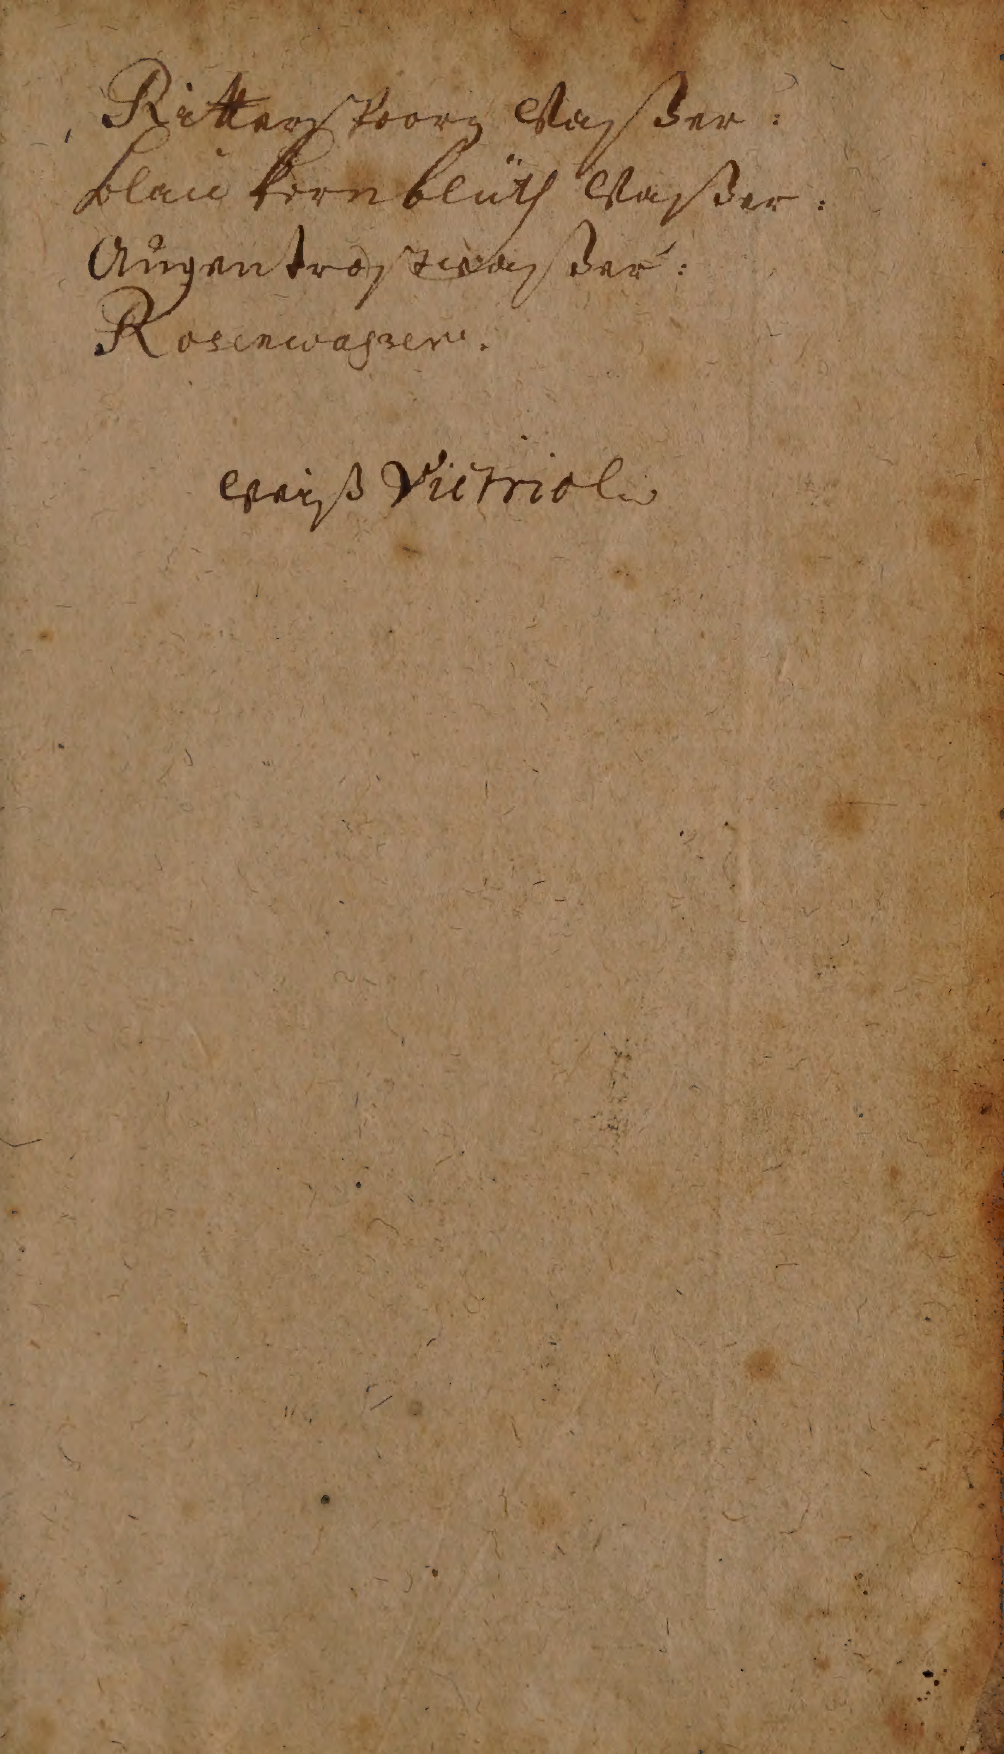 Ritterspoorn Waßer:
blau kornblüth Waßer:
Augentrostwaßer:
Rosenwaßer.
Weiß Victriol